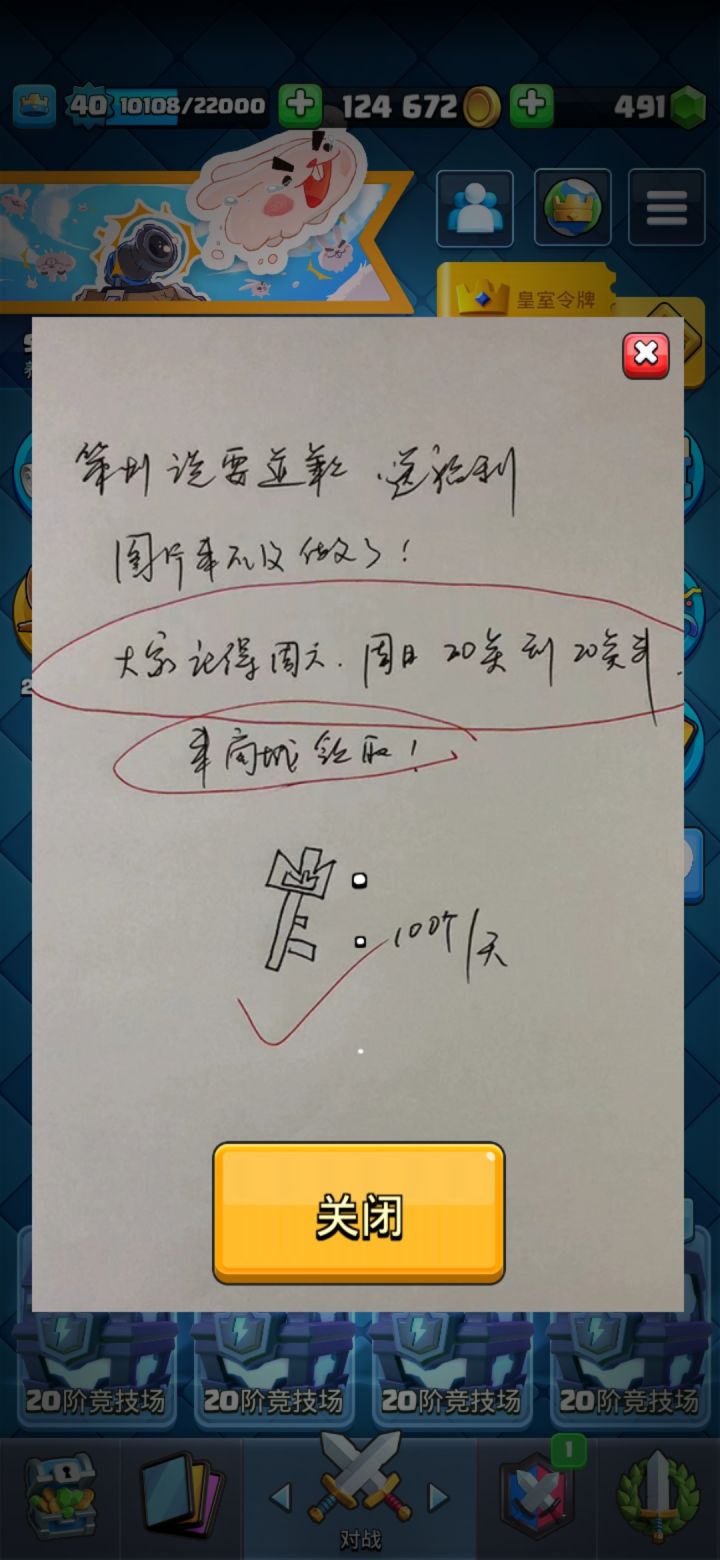 40 10108/22000
124 672
491
皇室令牌
策划说要道歉.送福利
图片来不及做了！
大家记得周六.周日 20点到20点半.
来商城领取！
100个/天
关闭
20阶竞技场
20阶竞技场
20阶竞技场
20阶竞技场
1
对战